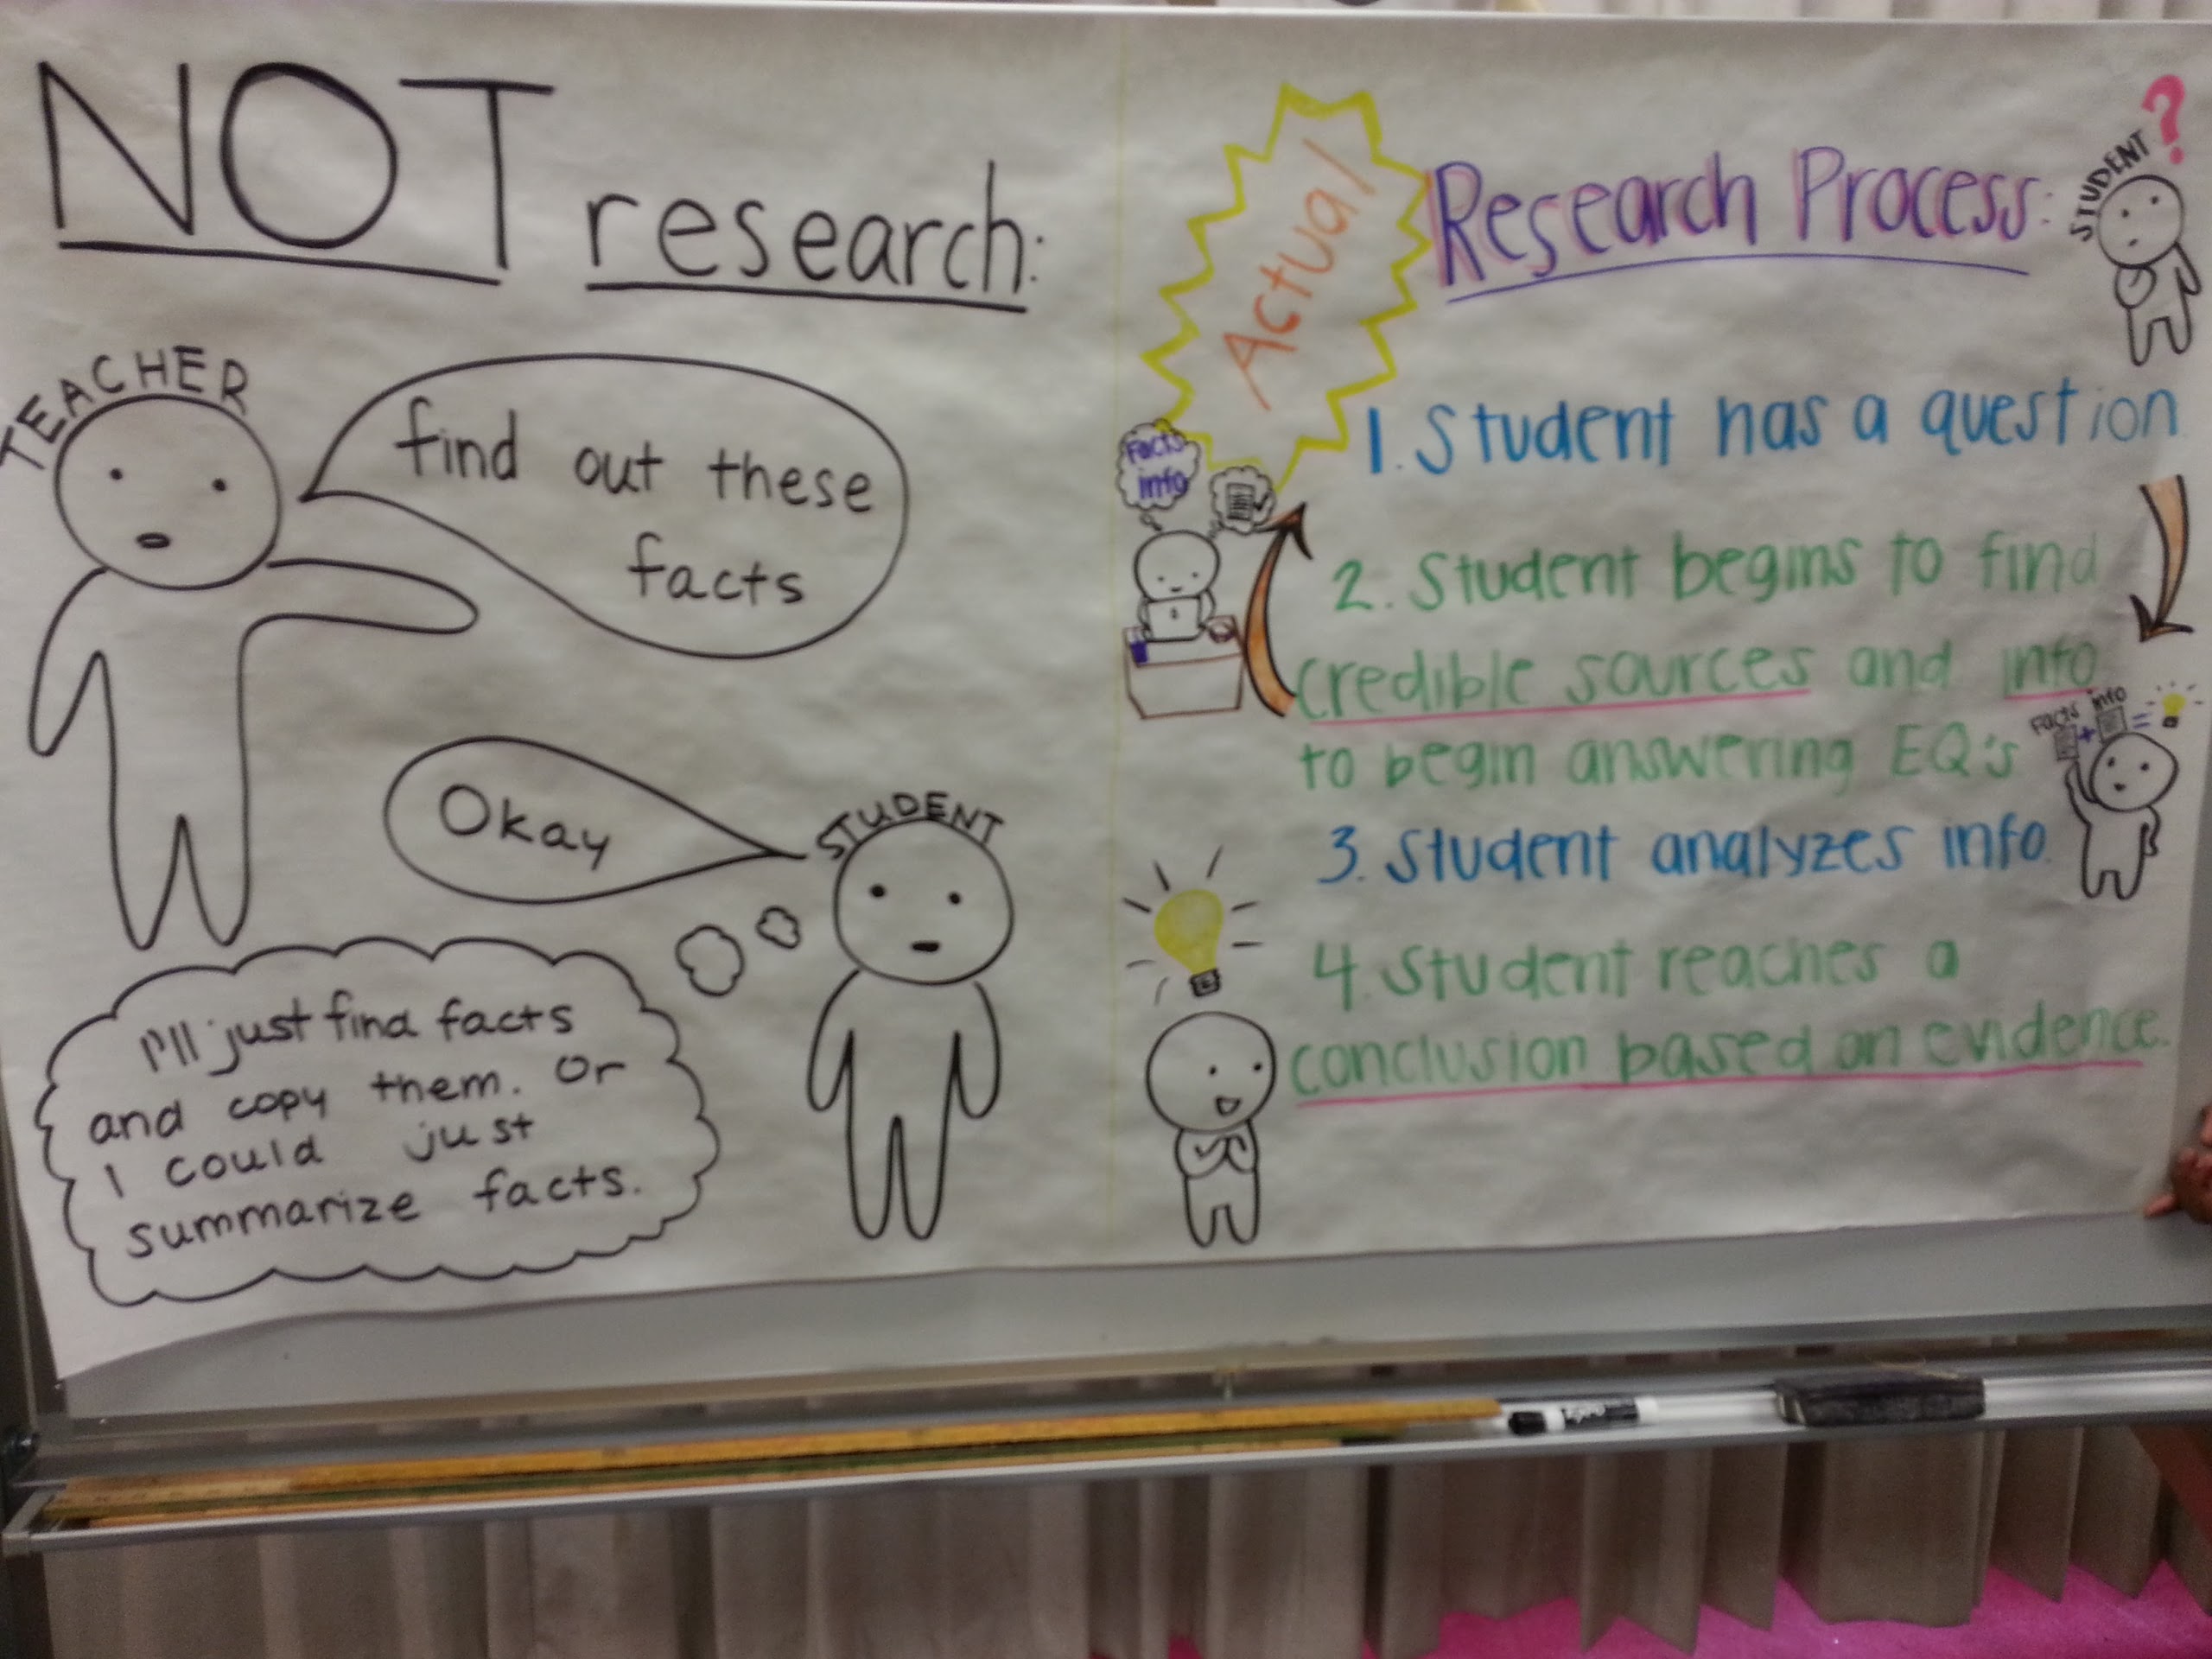 NOT research:
TEACHER
find out these
facts
Okay
STUDENT
I'll just find facts
and copy them. Or
I could just
summarize facts.
Actual
Research Process:
STUDENT ?
1. Student has a question.
Facts
info
2. Student begins to find
credible sources and info
to begin answering EQ's
Facts + info =
3. Student analyzes info.
4. Student reaches a
conclusion based on evidence.